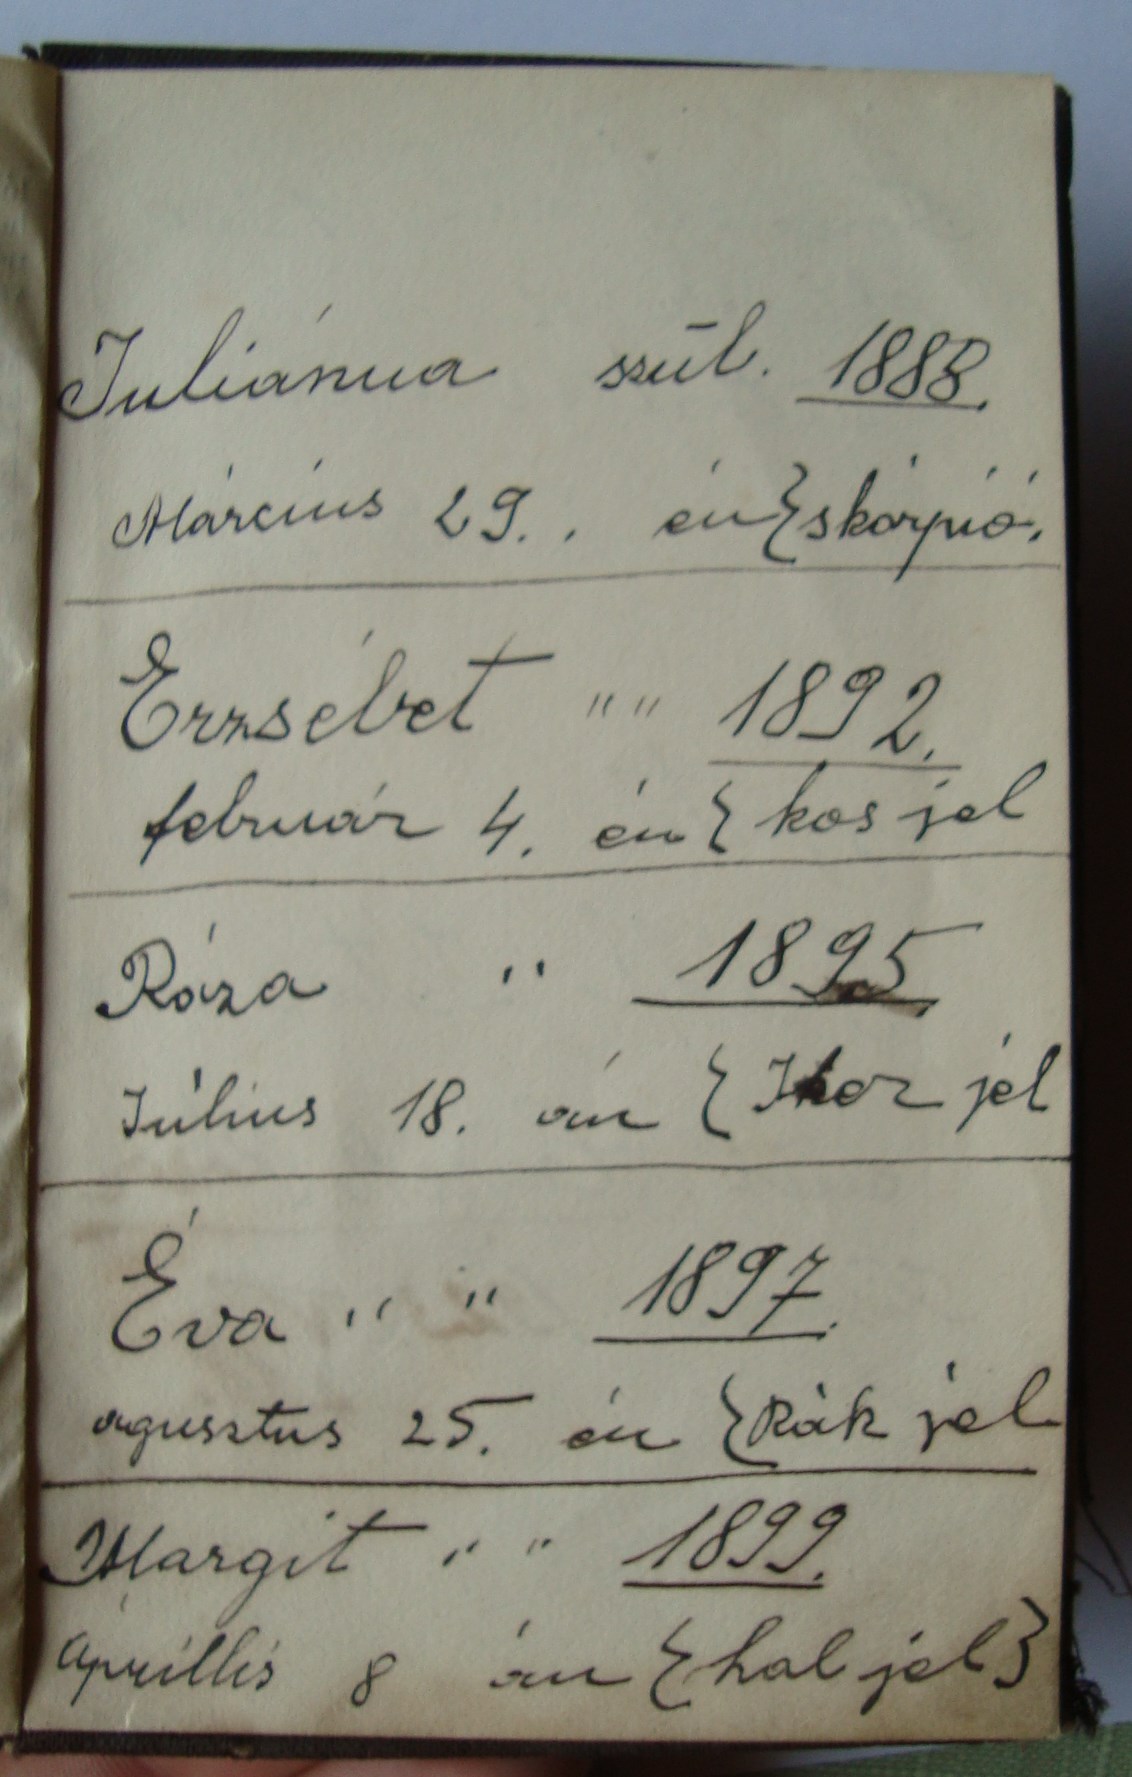 Juliánna szül. 1888.
Március 29. . én { skórpió.
Erzsébet " " 1892.
február 4. én { kos jel
Róza " 1895.
Július 18. án { Ikor jel
Éva " " 1897.
agusztus 25. én { Rák jel
Margit " " 1899.
Áprillis 8 án { hal jel }